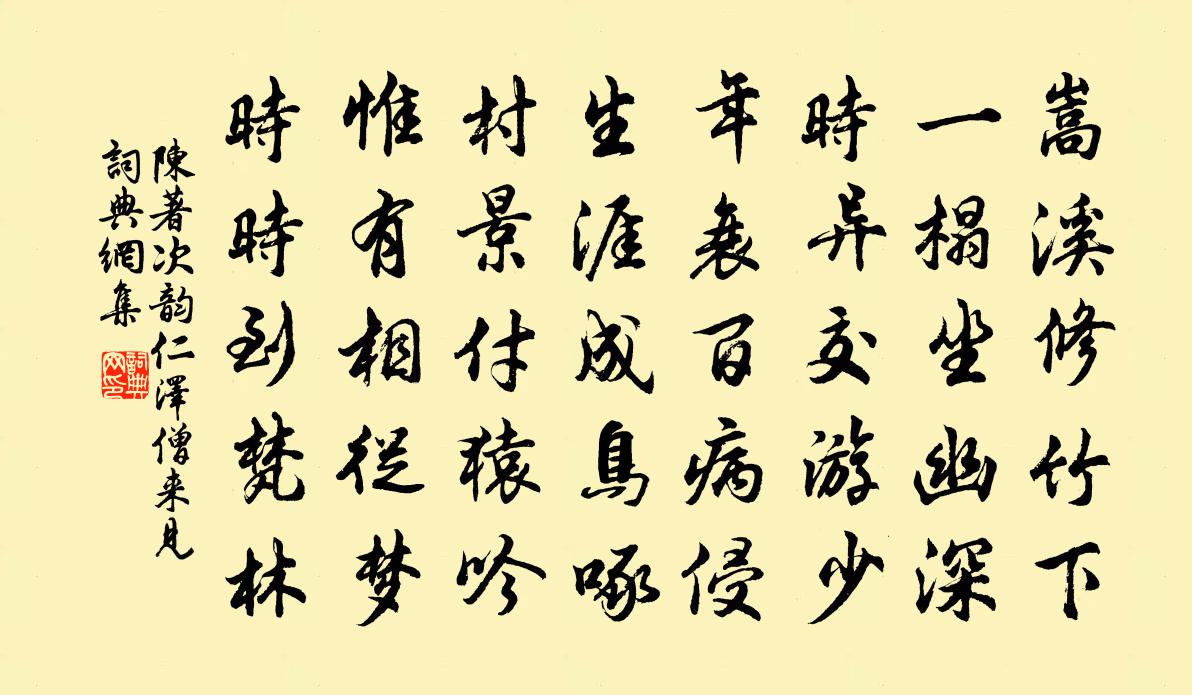 嵩溪修竹下
一榻坐幽深
時异交游少
年衰百病侵
生涯成鳥啄
村景付猿吟
惟有相從梦
時時到梵林
陳著次韵仁澤僧来見
詞典網集
詞典网印